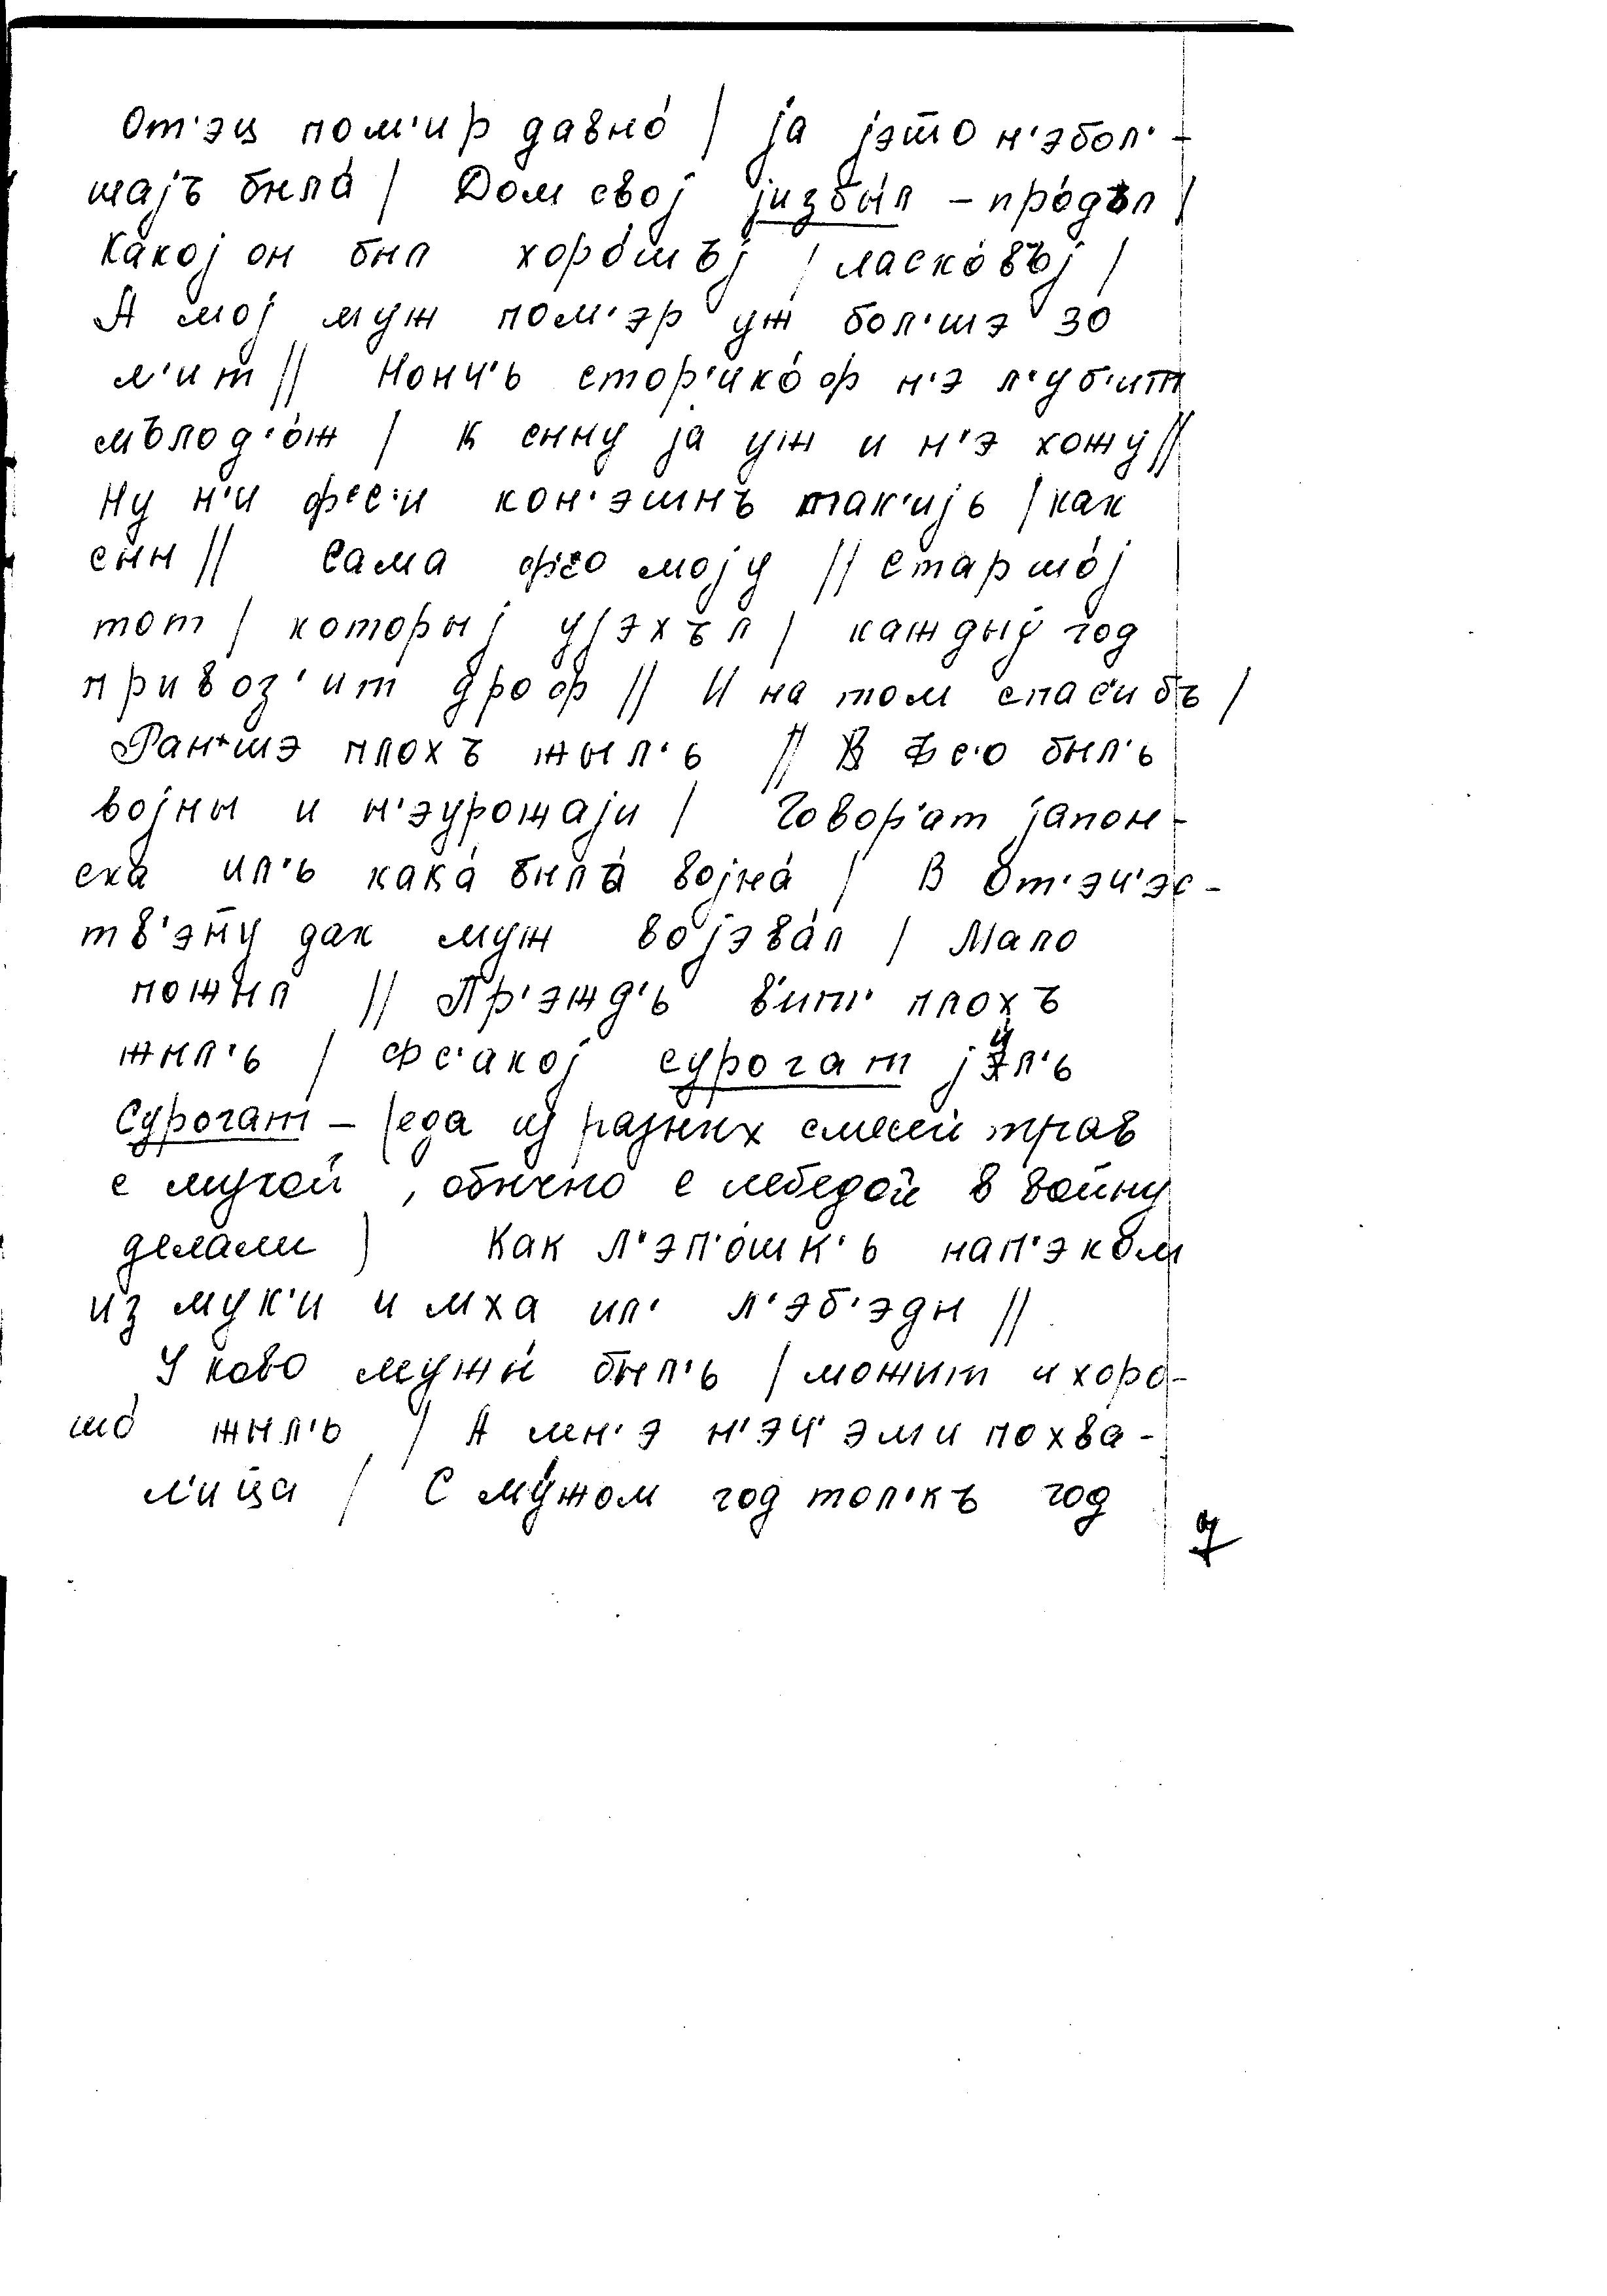 От'эц пом'ир давно́ / jа jэт̄о н'эбол'-
шаjъ была́ / Дом своj jизбы́л – про́дъл /
Какоj он был хоро́шъj / ласко́въj /
А моj муж пом'эр уж бол'шэ 30
л'ит // Нонч'ь стор'ико́ф н'э л'уб'ит
мълод'о́ж / к сыну jа уж и н'э хожу //
Ну н'и фс'и кон'эшнъ так'иjь / как
сын // Сама фс'о моjу // Старшо́j
тот / которыj уjэхъл / каждыj год
привоз'ит дроф // И на том спас'ибъ /
Ран'шэ плохъ жыл'ь // В Фс'о был'ь
воjны и н'эурожаjи / Говор'ат jапон-
ска ил'ь кака́ была́ воjна́ / В От'эч'эс-
тв'эн̄у дак муж воjэва́л / Мало
пожыл // Пр'эжд'ь в'ит' плохъ
жыл'ь / Фс'акоj сурогат jил'ь
Сурогат – (еда из разных смесей трав
с мукой, обычно с лебедой в войну
делали) Как л'эп'о́шк'ь нап'эком
из мук'и и мха ил' л'эб'эды //
У ково мужы́ был'ь / можит и хоро-
шо́ жыл'ь / А мн'э н'эч'эми похва-
л'иц̄а / С му́жом год тол'къ год
7